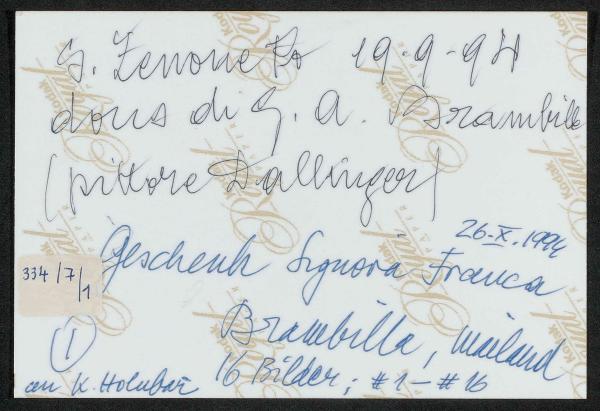 S. Zenone Po 19-9-94
dono di G. A. Brambilla
(pittore Dallinger)
26-X.1994
Geschenk Signora Franca
334/7/1
Brambilla, Mailand
①
16 Bilder; #1-#16
an K. Holubař